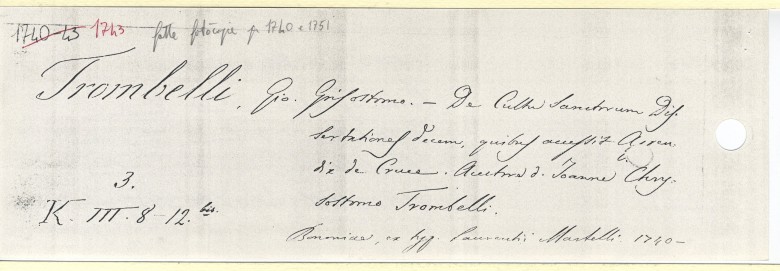 1740-43 1743 fatte fotocopie p 1740 e 1751
Trombelli, Gio. Grisostomo. — De Cultu Sanctorum Dis-
sertationes decem, quibus accessit Appen-
dix de Cruce. Auctore d. Joanne Chry-
sostomo Trombelli.
3.
K. III. 8-12. bis.
Bononiae, ex typ. Laurentii Martelli 1740-